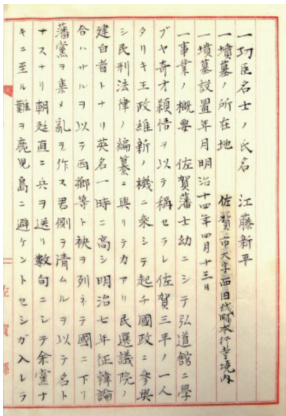 一功臣名士ノ氏名　江藤新平
一墳墓ノ所在地　佐賀市大字西田代町本行寺境内
一墳墓設置年月明治十四年四月十三日
一事業ノ概要　佐賀藩士幼ニシテ弘道館ニ學
ブヤ奇才穎悟ヲ以テ稱セラレ佐賀三平ノ一人
タリキ王政維新ノ機ニ乘シテ起チ國政ニ參與
シ民刑法律ノ編纂ニ與リテ力アリ民選議院ノ
建白者トナリ英名一時ニ高シ明治七年征韓論
合ハサルヲ以テ西鄕等ト袂ヲ列ネテ國ニ下リ
藩黨ヲ集メ亂ヲ作ス君側ヲ清ムルヲ以テ名ト
ナスナリ朝廷直ニ兵ヲ送リ數旬ニシテ余黨ナ
キニ至ル難ヲ鹿児島ニ避ケントセシガ入レラ
佐賀縣